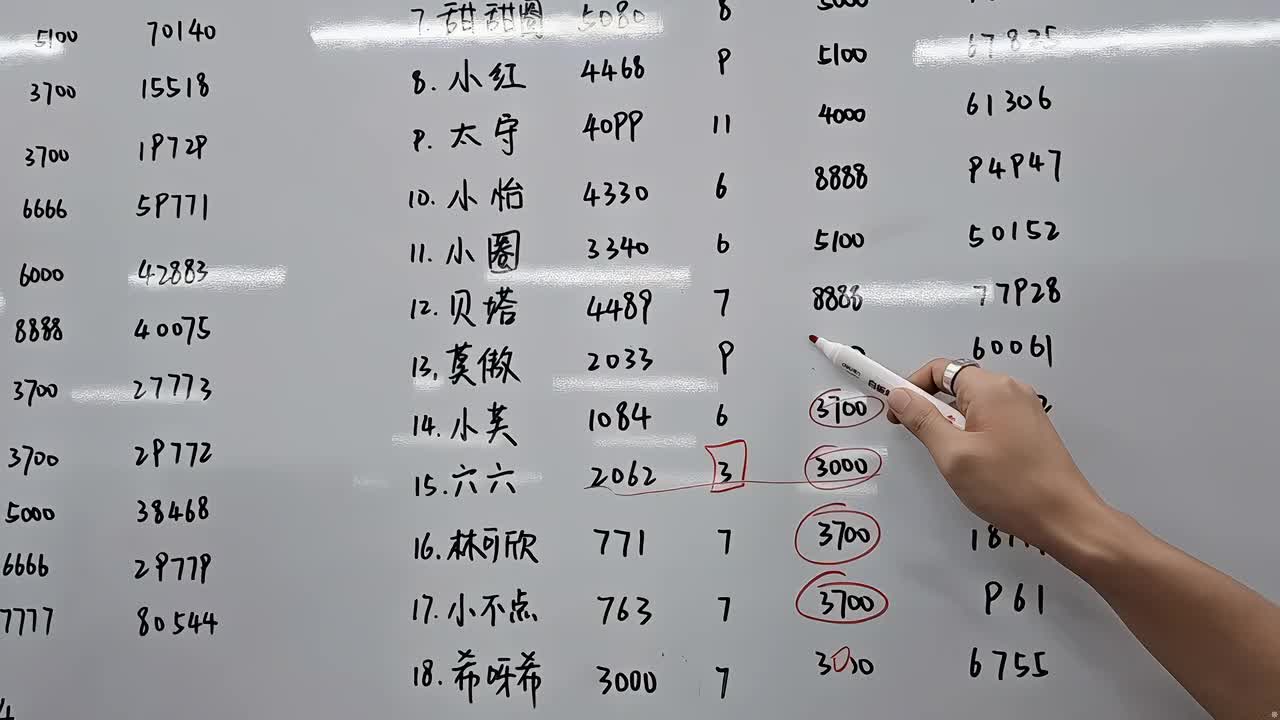 5100 70140
3700 15518
3700 19729
6666 59771
6000 42883
8888 40075
3700 27773
3700 29772
5000 38468
6666 29779
7777 80544
7. 甜甜圈 5080 8
8. 小红 4468 9 5100 67835
9. 太守 4099 11 4000 61306
10. 小怡 4330 6 8888 94947
11. 小圈 3340 6 5100 50152
12. 贝塔 4489 7 8888 77928
13. 莫傲 2033 9 60061
14. 小芙 1084 6 3700
15. 六六 2062 3 3000
16. 林可欣 771 7 3700
17. 小不点 763 7 3700 961
18. 希呀希 3000 7 3000 6755